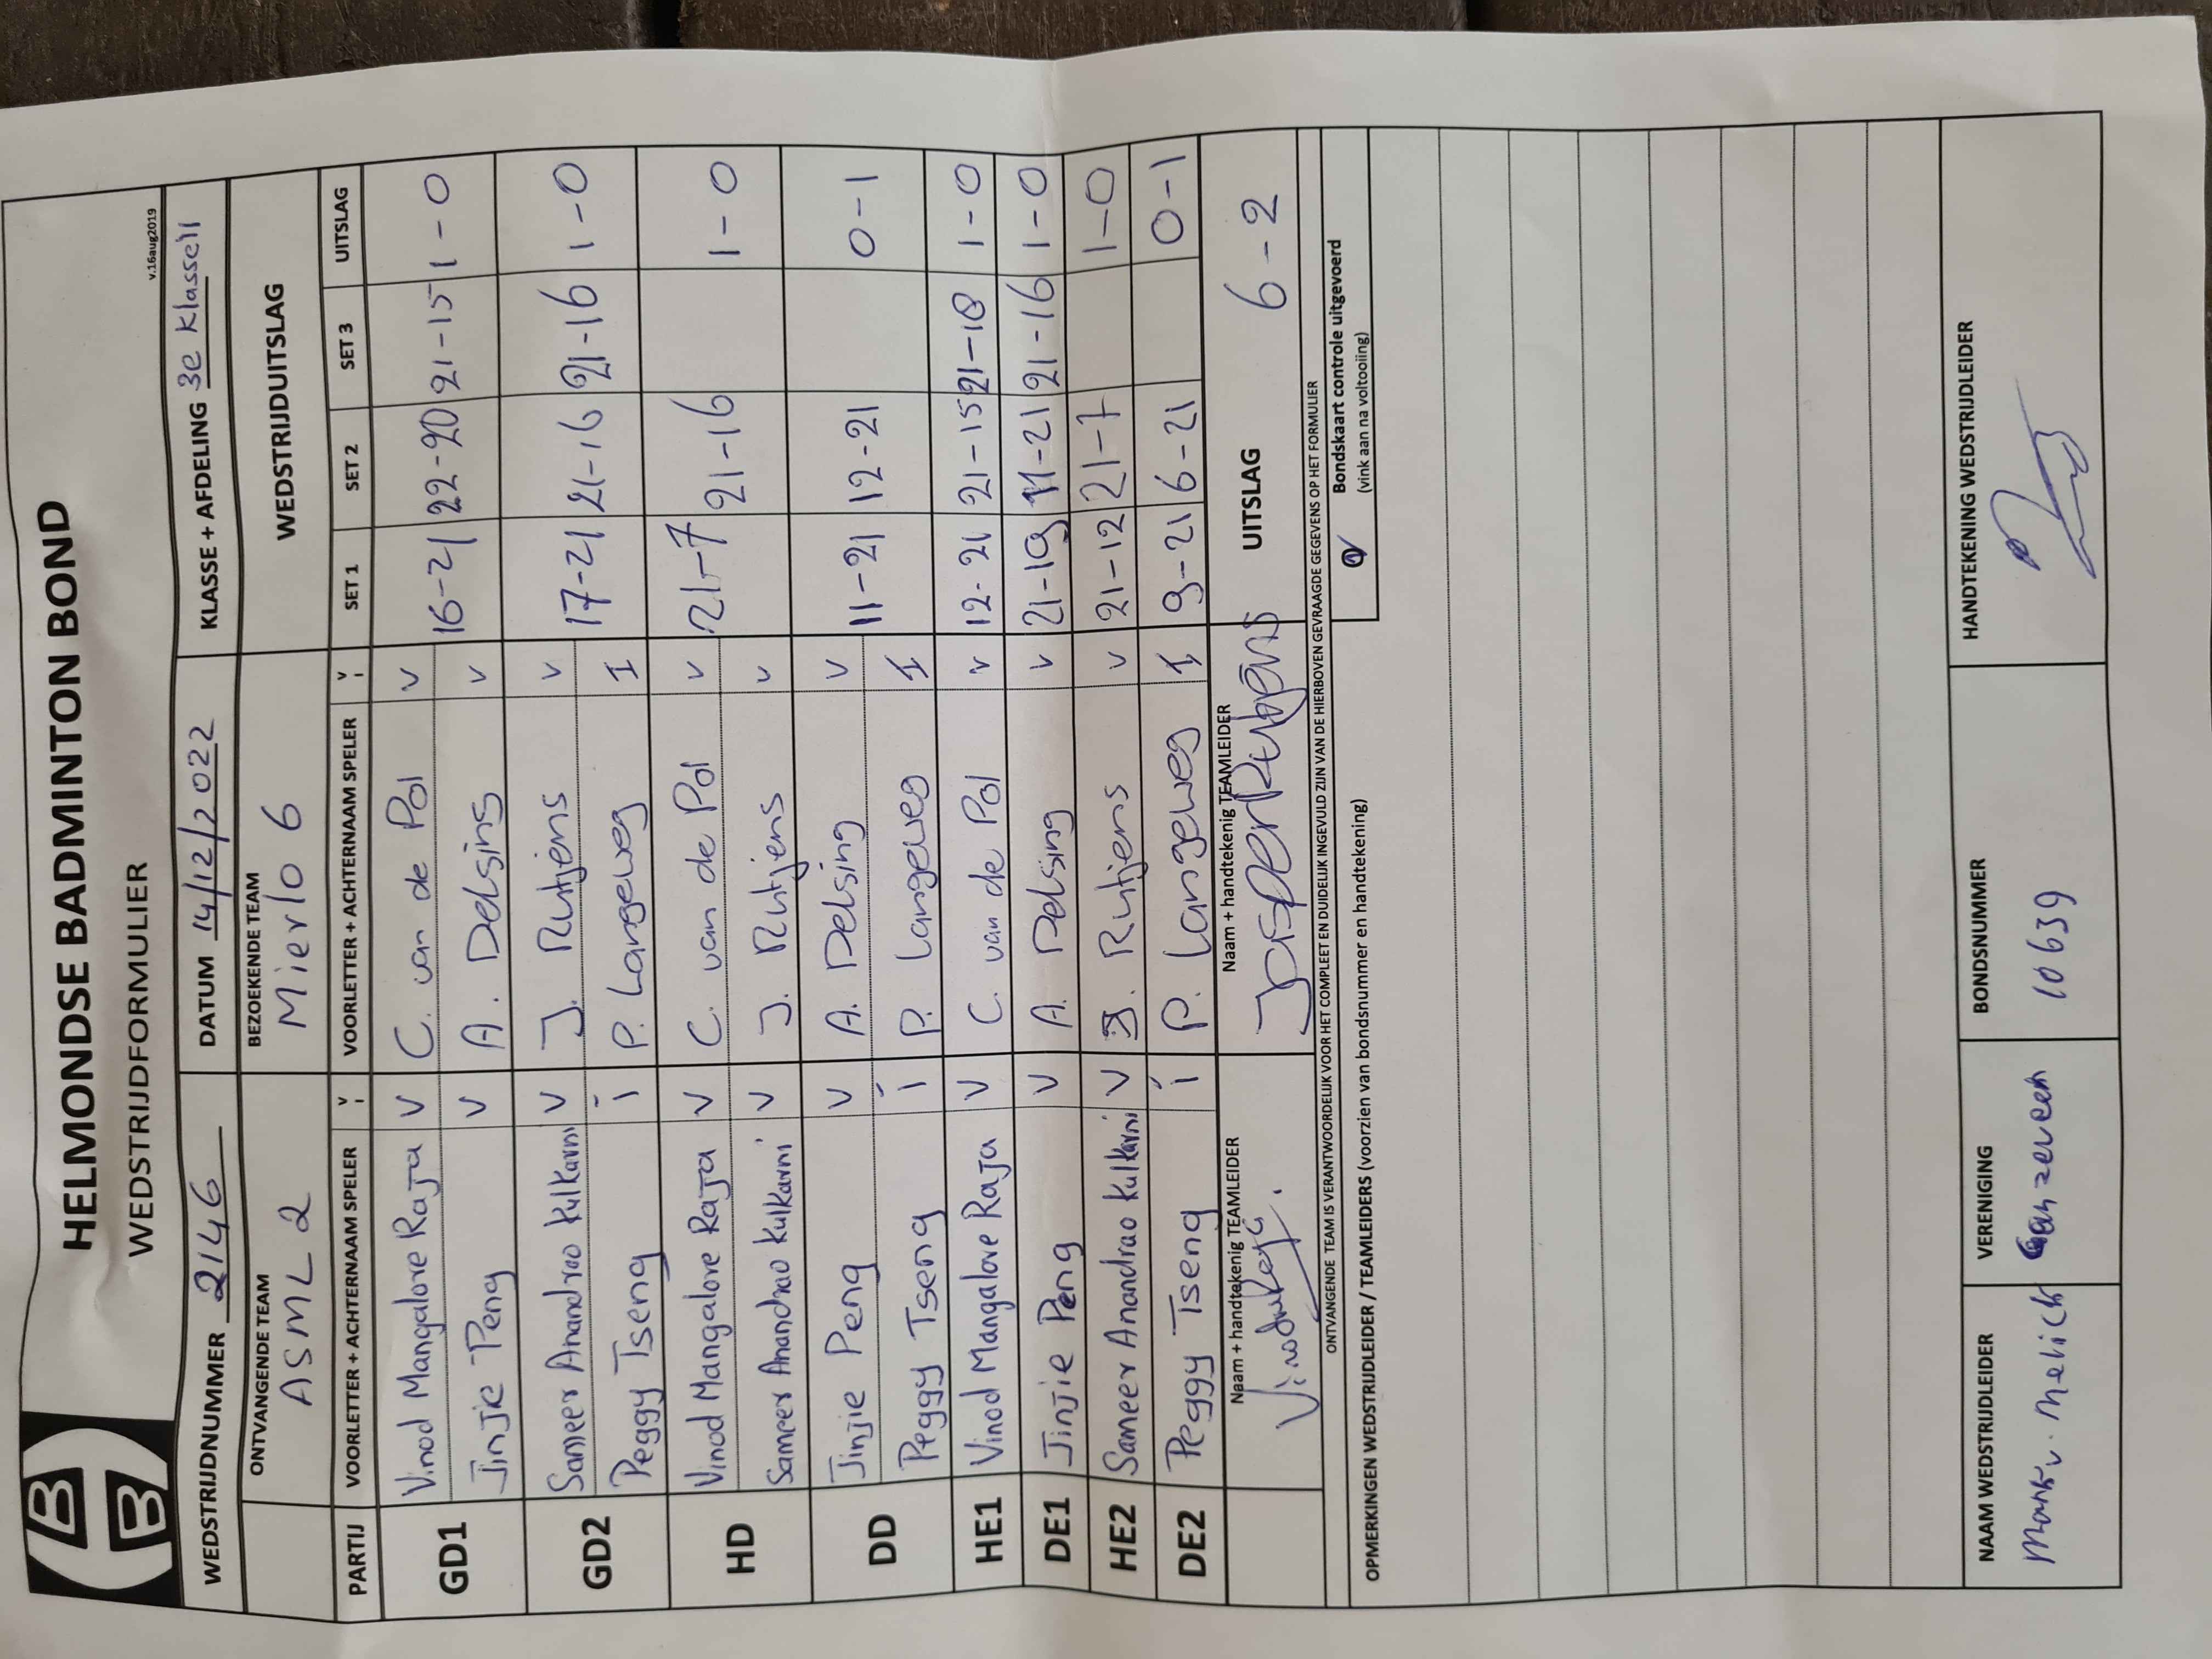 HBB
HELMONDSE BADMINTON BOND
WEDSTRIJDFORMULIER
v.16aug2019
WEDSTRIJDNUMMER 2146 DATUM 14/12/2022 KLASSE + AFDELING 3e Klasse
ONTVANGENDE TEAM BEZOEKENDE TEAM WEDSTRIJDUITSLAG
ASML 2 Mierlo 6
PARTIJ VOORLETTER + ACHTERNAAM SPELER V I VOORLETTER + ACHTERNAAM SPELER V I SET 1 SET 2 SET 3 UITSLAG
GD1 Vinod Mangalore Raja V C. van de Pol V 16-21 22-20 21-15 1-0
Jinjie Peng V A. Delsing V
GD2 Sameer Anandrao Kulkarni V J. Rutjens V 17-21 21-16 21-16 1-0
Peggy Tseng i P. Langeweg I
HD Vinod Mangalore Raja V C. van de Pol V 21-7 21-16 1-0
Sameer Anandrao Kulkarni V J. Rutjens V
DD Jinjie Peng V A. Delsing V 11-21 12-21 0-1
Peggy Tseng i P. Langeweg I
HE1 Vinod Mangalore Raja V C. van de Pol V 12-21 21-15 21-18 1-0
DE1 Jinjie Peng V A. Delsing V 21-19 11-21 21-16 1-0
HE2 Sameer Anandrao Kulkarni V J. Rutjens V 21-12 21-7 1-0
DE2 Peggy Tseng i P. Langeweg I 9-21 6-21 0-1
Naam + handtekenig TEAMLEIDER Naam + handtekenig TEAMLEIDER UITSLAG 6-2
Vinod Raja. Jasper Rutjens
ONTVANGENDE TEAM IS VERANTWOORDELIJK VOOR HET COMPLEET EN DUIDELIJK INGEVULD ZIJN VAN DE HIERBOVEN GEVRAAGDE GEGEVENS OP HET FORMULIER
OPMERKINGEN WEDSTRIJDLEIDER / TEAMLEIDERS (voorzien van bondsnummer en handtekening)
Bondskaart controle uitgevoerd
(vink aan na voltooiing)
NAAM WEDSTRIJDLEIDER VERENIGING BONDSNUMMER HANDTEKENING WEDSTRIJDLEIDER
10639